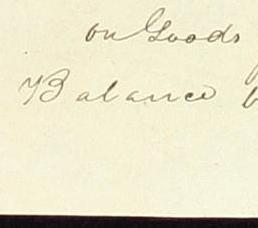 on Goods
Balance